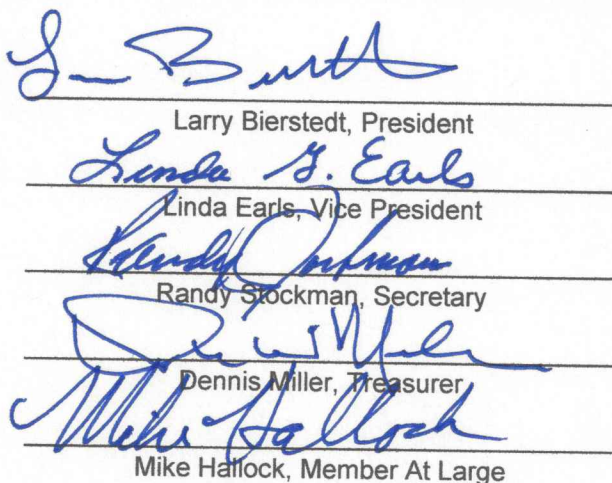 Larry Bierstedt, President
Linda G. Earls
Linda Earls, Vice President
Randy Stockman
Randy Stockman, Secretary
Dennis Miller, Treasurer
Mike Hallock
Mike Hallock, Member At Large